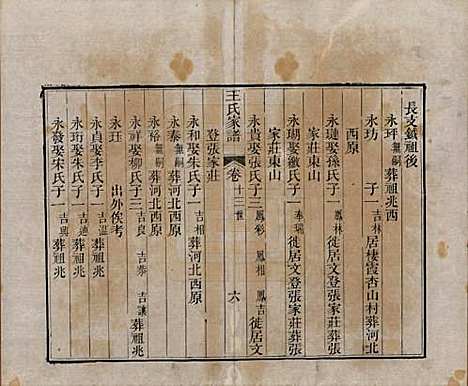 長支鉞祖後
永坪 無嗣 葬祖兆西
永坊 子一 吉林 居棲霞杏山村葬河北
西原
永璉娶孫氏子一 鳳林 徙居文登張家莊葬張
家莊東山
永瑚娶 氏子一 奉瑞 徙居文登張家莊葬張
家莊東山
永貴娶張氏子三 鳳彩 鳳相 鳳吉 徙居文
王氏家譜 卷 十三世 六
登張家莊
永和娶朱氏子一 吉相 葬河北西原
永泰 無嗣 葬河北西原
永裕 無嗣 葬河北西原
永祥娶柳氏子三 吉良 吉泰 吉讓 葬祖兆
永珏 出外俟考
永貞娶李氏子一 吉溫 葬祖兆
永珩娶朱氏子一 吉連 葬祖兆
永發娶宋氏子一 吉興 葬祖兆